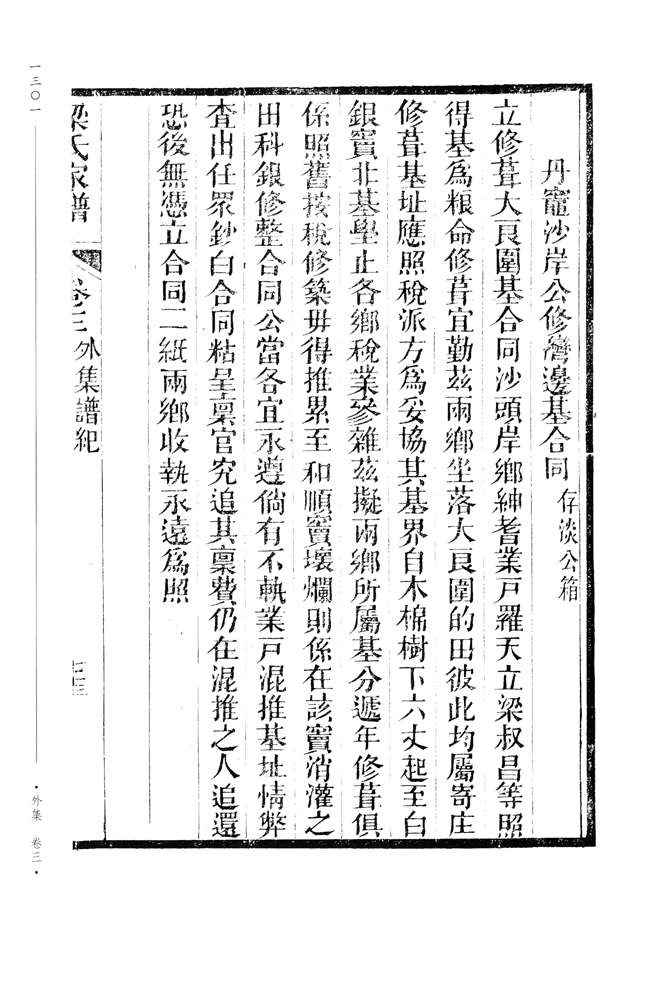 丹竈沙岸公修灣邊基合同 存淡公箱
立修葺大良圍基合同沙頭岸鄉紳耆業戸羅天立梁叔昌等照
得基爲粮命修葺宜勤茲兩鄉坐落大良圍的田彼此均屬寄庄
修葺基址應照稅派方爲妥協其基界自木棉樹下六丈起至白
銀竇北基壆止各鄉稅業參雜茲擬兩鄉所屬基分遞年修葺俱
係照舊按稅修築毋得推累至和順竇壞爛則係在該竇消灌之
田科銀修整合同公當各宜永遵倘有不執業戸混推基址情弊
查出任眾鈔白合同粘呈稟官究追其稟費仍在混推之人追還
恐後無憑立合同二紙兩鄉收執永遠爲照
梁氏家譜 卷三 外集譜紀 七三
一三〇一
·外集 卷三·